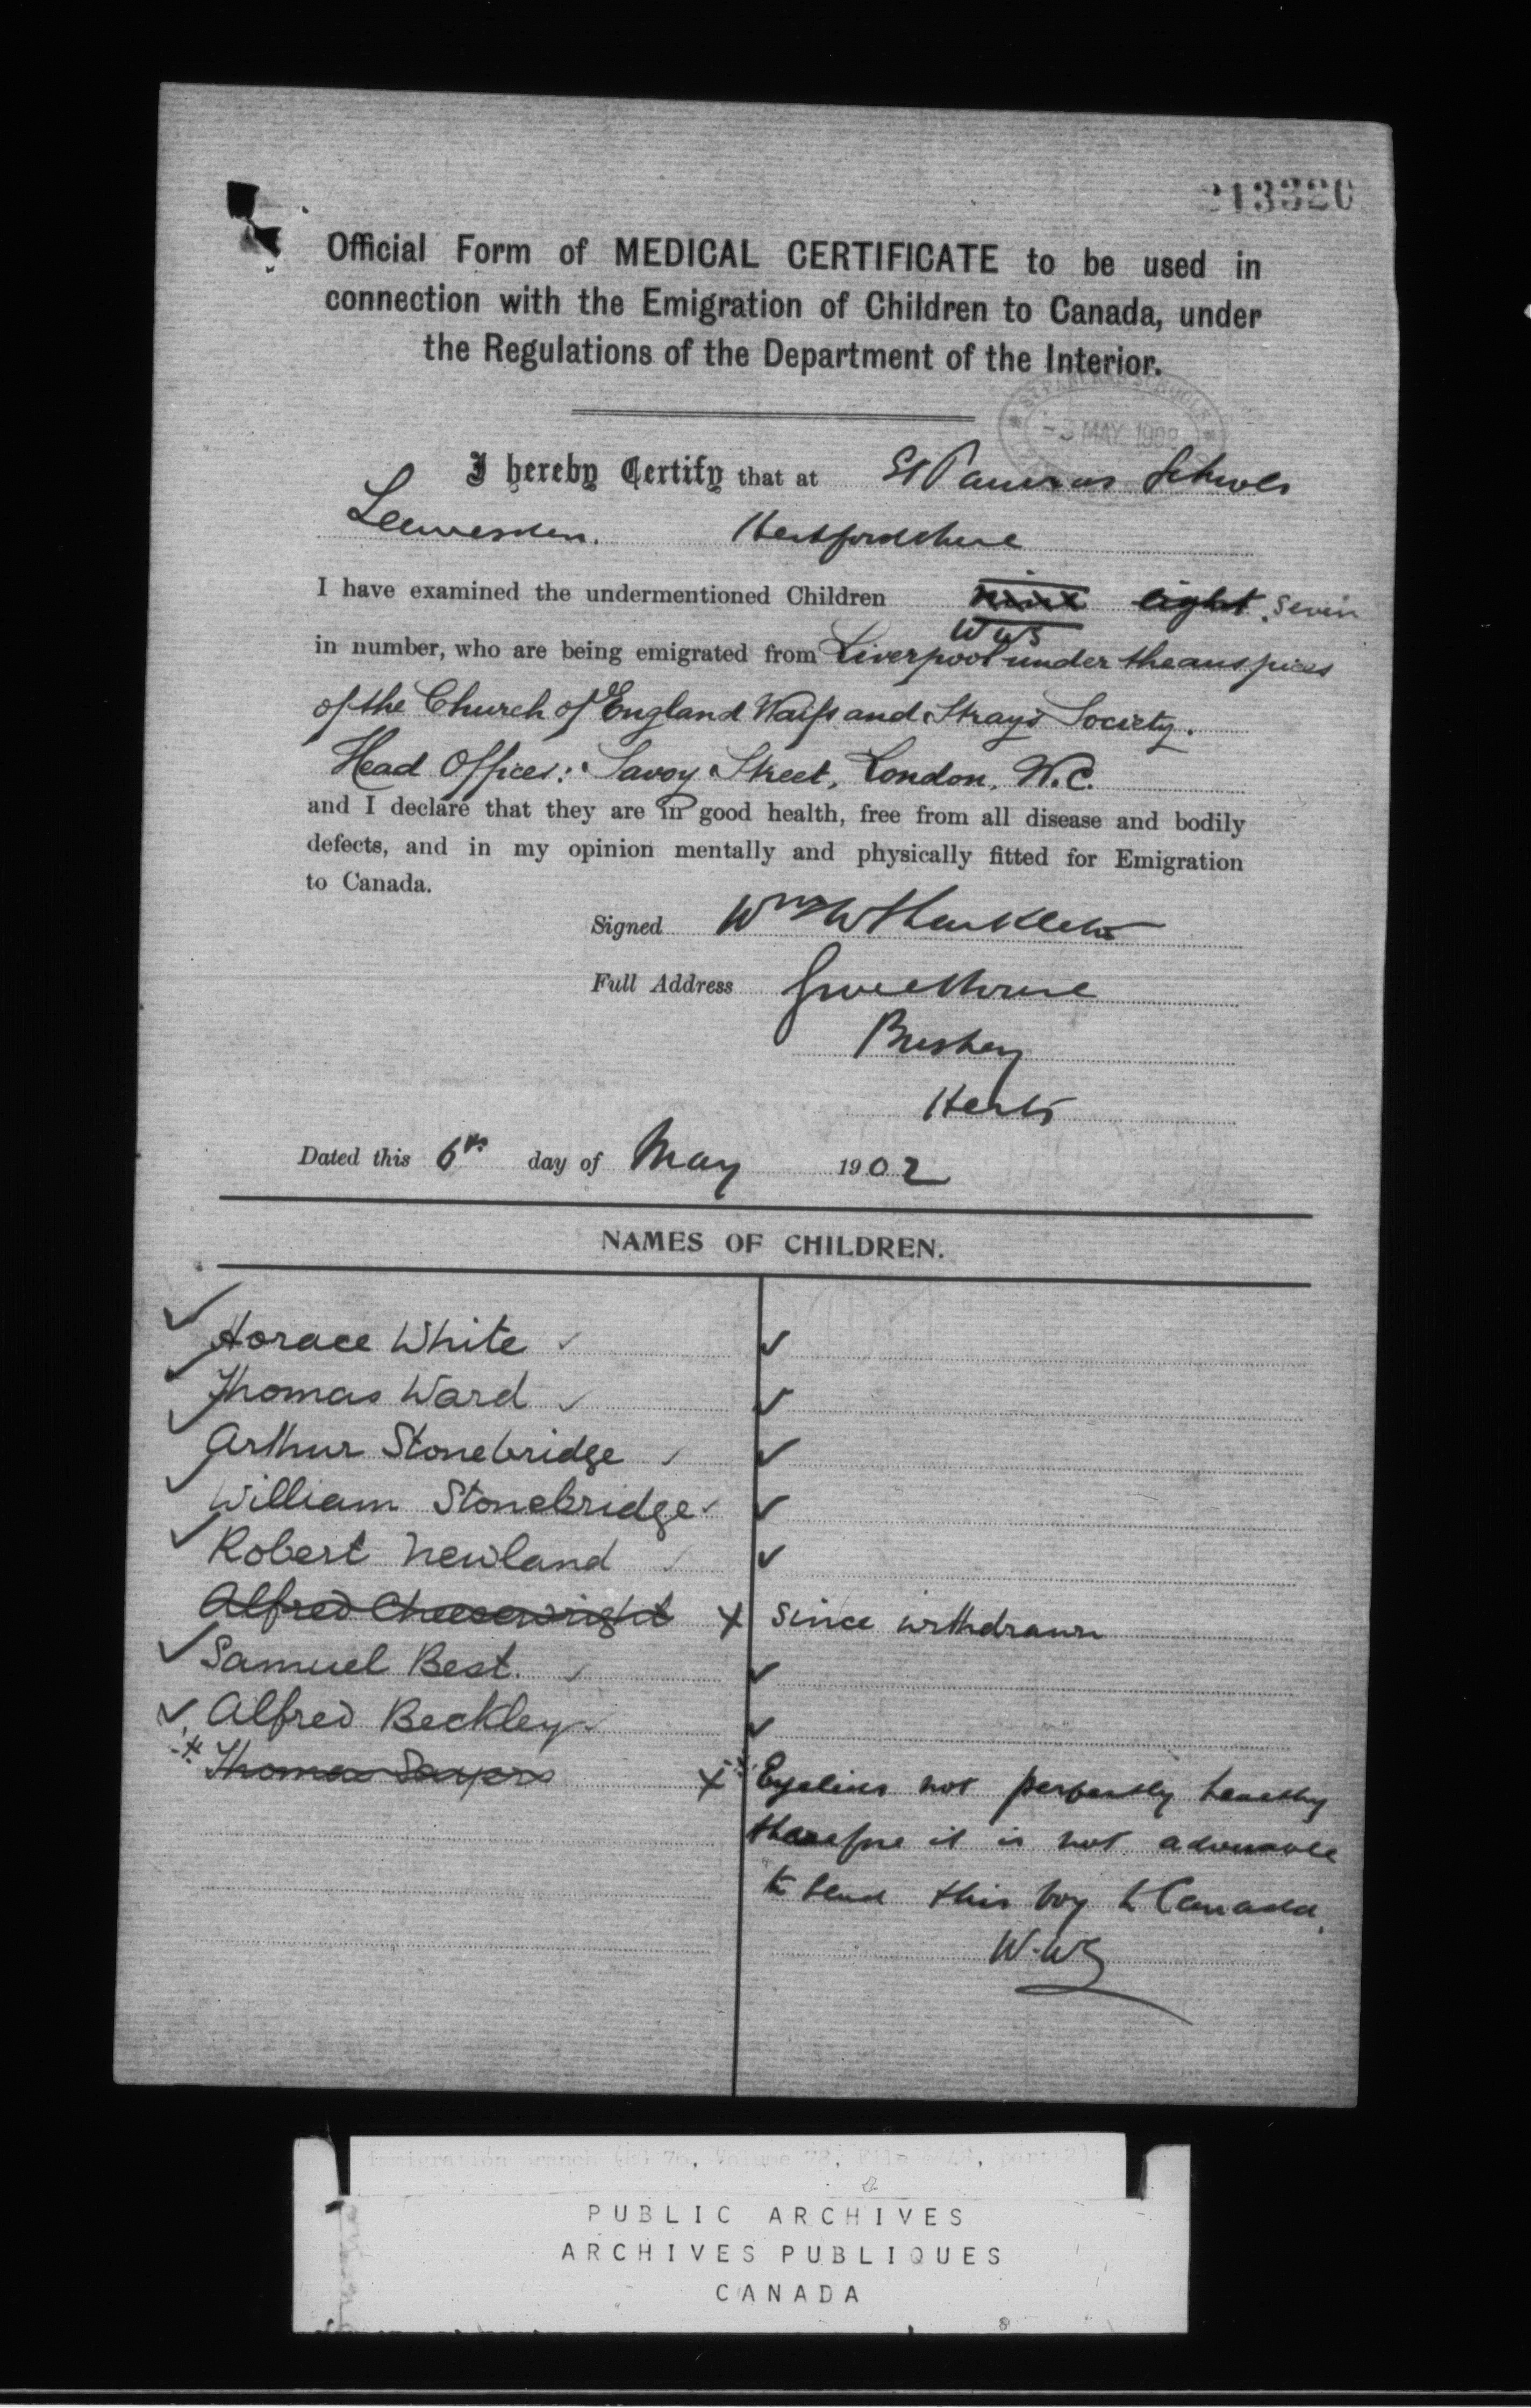 213320
Official Form of MEDICAL CERTIFICATE to be used in
connection with the Emigration of Children to Canada, under
the Regulations of the Department of the Interior.
ST PANCRAS SCHOOLS
-3 MAY. 1902
I hereby Certify that at St Pancras Schools
Leavesden. Hertfordshire
I have examined the undermentioned Children nine eight. seven
WWS
in number, who are being emigrated from Liverpool under the auspices
of the Church of England Waifs and Strays Society.
Head Offices: Savoy Street, London, W.C.
and I declare that they are in good health, free from all disease and bodily
defects, and in my opinion mentally and physically fitted for Emigration
to Canada.
Signed Wm W Shackleton
Full Address
Bushey
Herts
Dated this 6th day of May 1902
NAMES OF CHILDREN.
Horace White
Thomas Ward
Arthur Stonebridge
William Stonebridge
Robert Newland
Alfred Cheesewright x since withdrawn
Samuel Best.
Alfred Beckley
Thomas Sayers x Eyelids not perfectly healthy
therefore it is not advisable
to send this boy to Canada.
W.WS
Immigration Branch (RG 76, Volume 78, File part 2)
PUBLIC ARCHIVES
ARCHIVES PUBLIQUES
CANADA